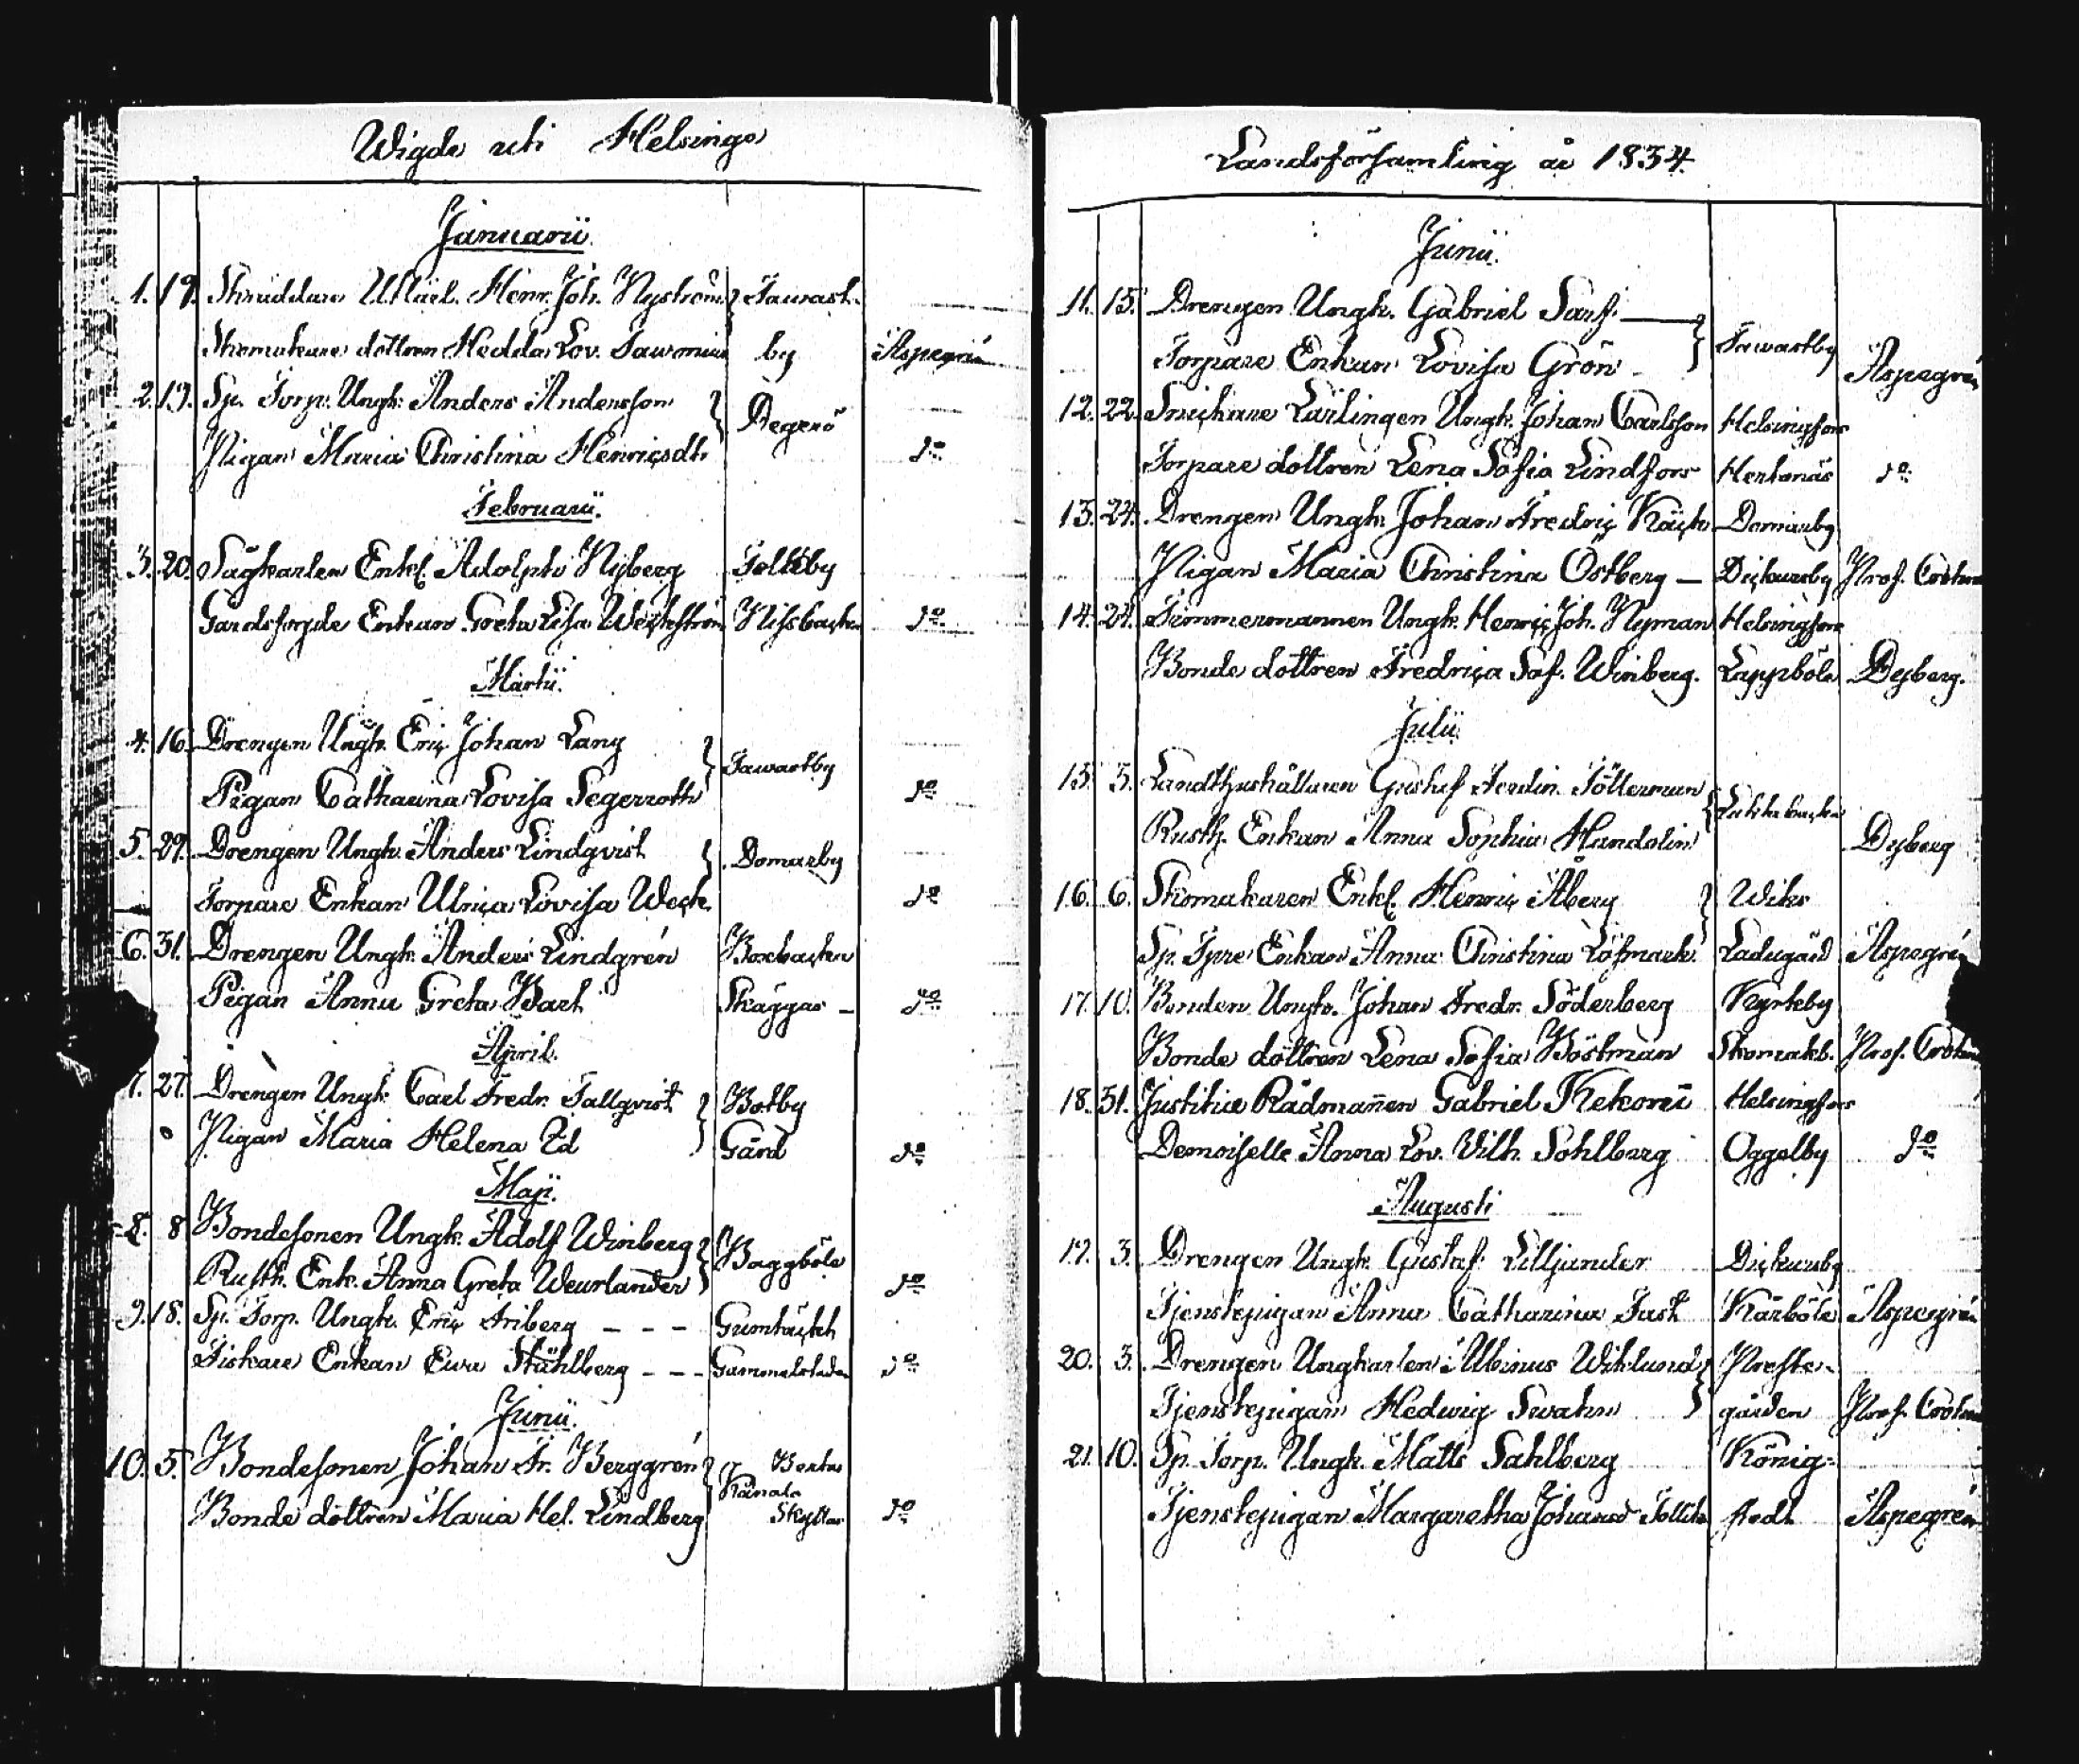 Wigde uti Helsinge
Januarii.
1. 19. Skräddare Henr. Joh. Nyström Tawast-
Skomakare dottren Hedda Lov. by Aspegrén
2. 19. Sp. Torp. Ungk. Anders Andersson Degerö
Pigan Maria Christina Henricsdt. do
Februarii.
3. 20. Sågkarlen Enkl. Adolph Nyberg Tolkby
Gårdsfogde Enkan Greta Lisa Nissbacka do
Martii.
4. 16. Drengen Ungk. Eric Johan Lang Tawastby
Pigan Catharina Lovisa Segerroth do
5. 29. Drengen Ungk. Anders Lindqvist Domarby
Torpare Enkan Ulrica Lovisa Weck. do
6. 31. Drengen Ungk. Anders Lindgrén Boxbacka
Pigan Anna Greta Skäggas - do
April.
7. 27. Drengen Ungk. Carl Fredr. Tallqvist Botby
Pigan Maria Helena Id Gård do
Maji.
8. 8 Bondesonen Ungk. Adolf Winberg Baggböle
Rusth. Enk. Anna Greta Weurlander do
9. 18. Sp. Torp. Ungk. Eric Friberg - - - Gumtäckt
Fiskare Enkan Ewa Ståhlberg - - - Gammelstaden do
Junii.
10. 5. Bondesonen Johan Fr. Berggrén Bertas
Kånala
Bonde dottren Maria Hel. Lindberg Skyttas do
Landsförsamling år 1834.
Junii.
11. 15. Drengen Ungk. Gabriel
Torpare Enkan Lovisa Grön Tawastby Aspegrén
12. 22. Snickare Lärlingen Ungk. Johan Carlsson Helsingfors
Torpare dottren Lena Sofia Lindfors Hertonäs do
13. 24. Drengen Ungk. Johan Fredric Domarby
Pigan Maria Christina Östberg - Dickursby Prof.
14. 24. Timmermannen Ungk. Henric Joh. Nyman Helsingfors
Bonde dottren Fredrica Sof. Winberg. Lappböle Dyberg.
Julii
15. 3. Landthushållaren Gustaf Ferdin.
Rusth. Enkan Anna Sophia Handolin Dyberg
16. 6. Skomakaren Enkl. Henric Åberg Wiks
Sp. Tpre Enkan Anna Christina Löfmark Ladugård Aspegrén
17. 10. Bonden Ungk. Johan Fredr. Söderberg Kyrkby
Bonde dottren Lena Sofia Böstman Skomakb. Prof.
18. 31. Justitiæ Rådmannen Gabriel Kekoni Helsingfors
Demoiselle Anna Lov. Vilh. Sohlberg Oggelby do
Augusti
19. 3. Drengen Ungk. Gustaf Lilljander Dickursby
Tjenstepigan Anna Catharina Fast Kårböle Aspegrén
20. 3. Drengen Ungkarlen Albinus Wiklund Preste-
Tjenstepigan Hedwig Swahn gården Prof.
21. 10. Sp. Torp. Ungk. Matts Sahlberg König-
Tjenstepigan Margaretha Johansd. stedt Aspegrén